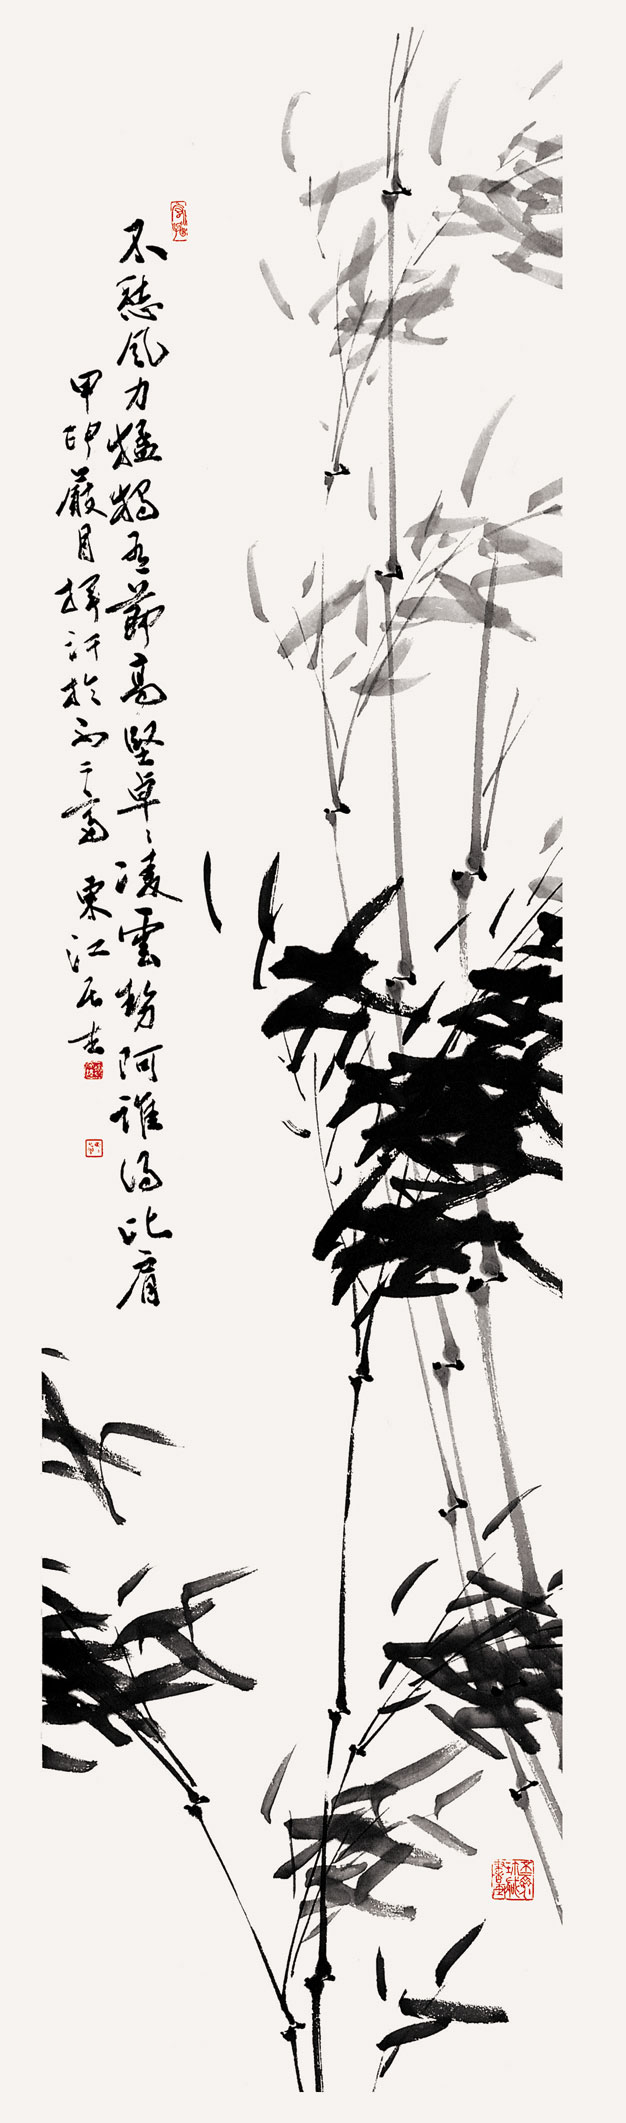 不愁風力猛獨有節高堅卓卓凌雲勢阿誰得比肩
甲申嚴月揮汗於不二齋 東江居士